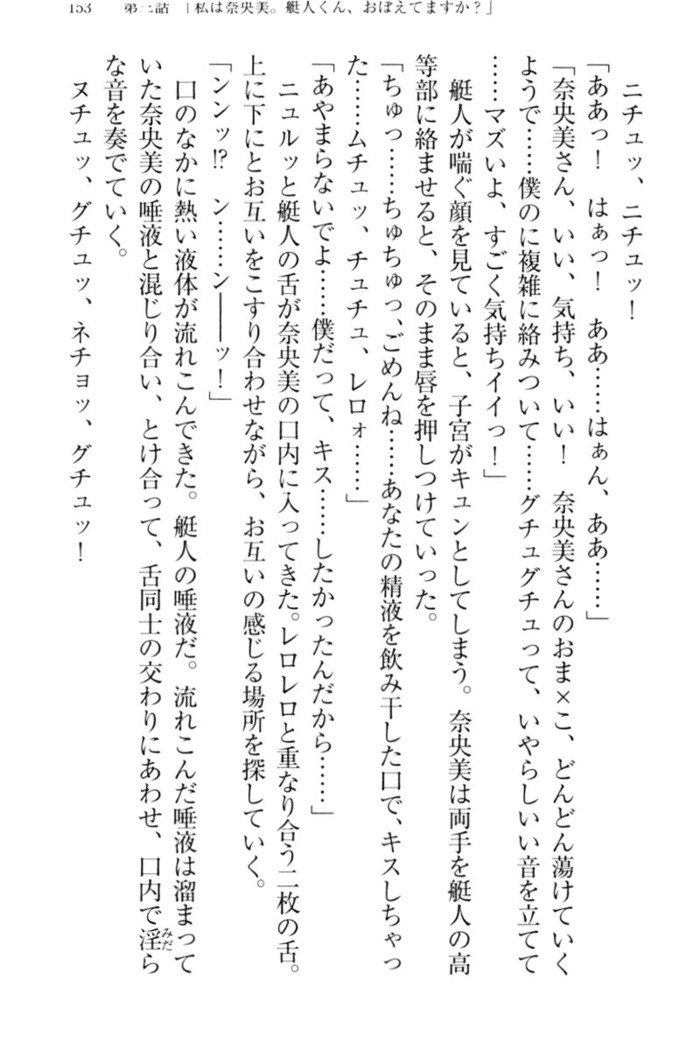 153 第 話 「私は奈央美。艇人くん、おぼえてますか？」
ニチュッ、ニチュッ！
「ああっ！　はぁっ！　ああ……はぁん、ああ……」
「奈央美さん、いい、気持ち、いい！　奈央美さんのおま×こ、どんどん蕩けていく
ようで……僕のに複雑に絡みついて……グチュグチュって、いやらしいい音を立てて
……マズいよ、すごく気持ちイイっ！」
艇人が喘ぐ顔を見ていると、子宮がキュンとしてしまう。奈央美は両手を艇人の高
等部に絡ませると、そのまま唇を押しつけていった。
「ちゅっ……ちゅちゅっ、ごめんね……あなたの精液を飲み干した口で、キスしちゃっ
た……ムチュッ、チュチュ、レロォ……」
「あやまらないでよ……僕だって、キス……したかったんだから……」
ニュルッと艇人の舌が奈央美の口内に入ってきた。レロレロと重なり合う二枚の舌。
上に下にとお互いをこすり合わせながら、お互いの感じる場所を探していく。
「ンンッ⁉　ン……ン――ッ！」
口のなかに熱い液体が流れこんできた。艇人の唾液だ。流れこんだ唾液は溜まって
いた奈央美の唾液と混じり合い、とけ合って、舌同士の交わりにあわせ、口内で淫みだら
な音を奏でていく。
ヌチュッ、グチュッ、ネチョッ、グチュッ！